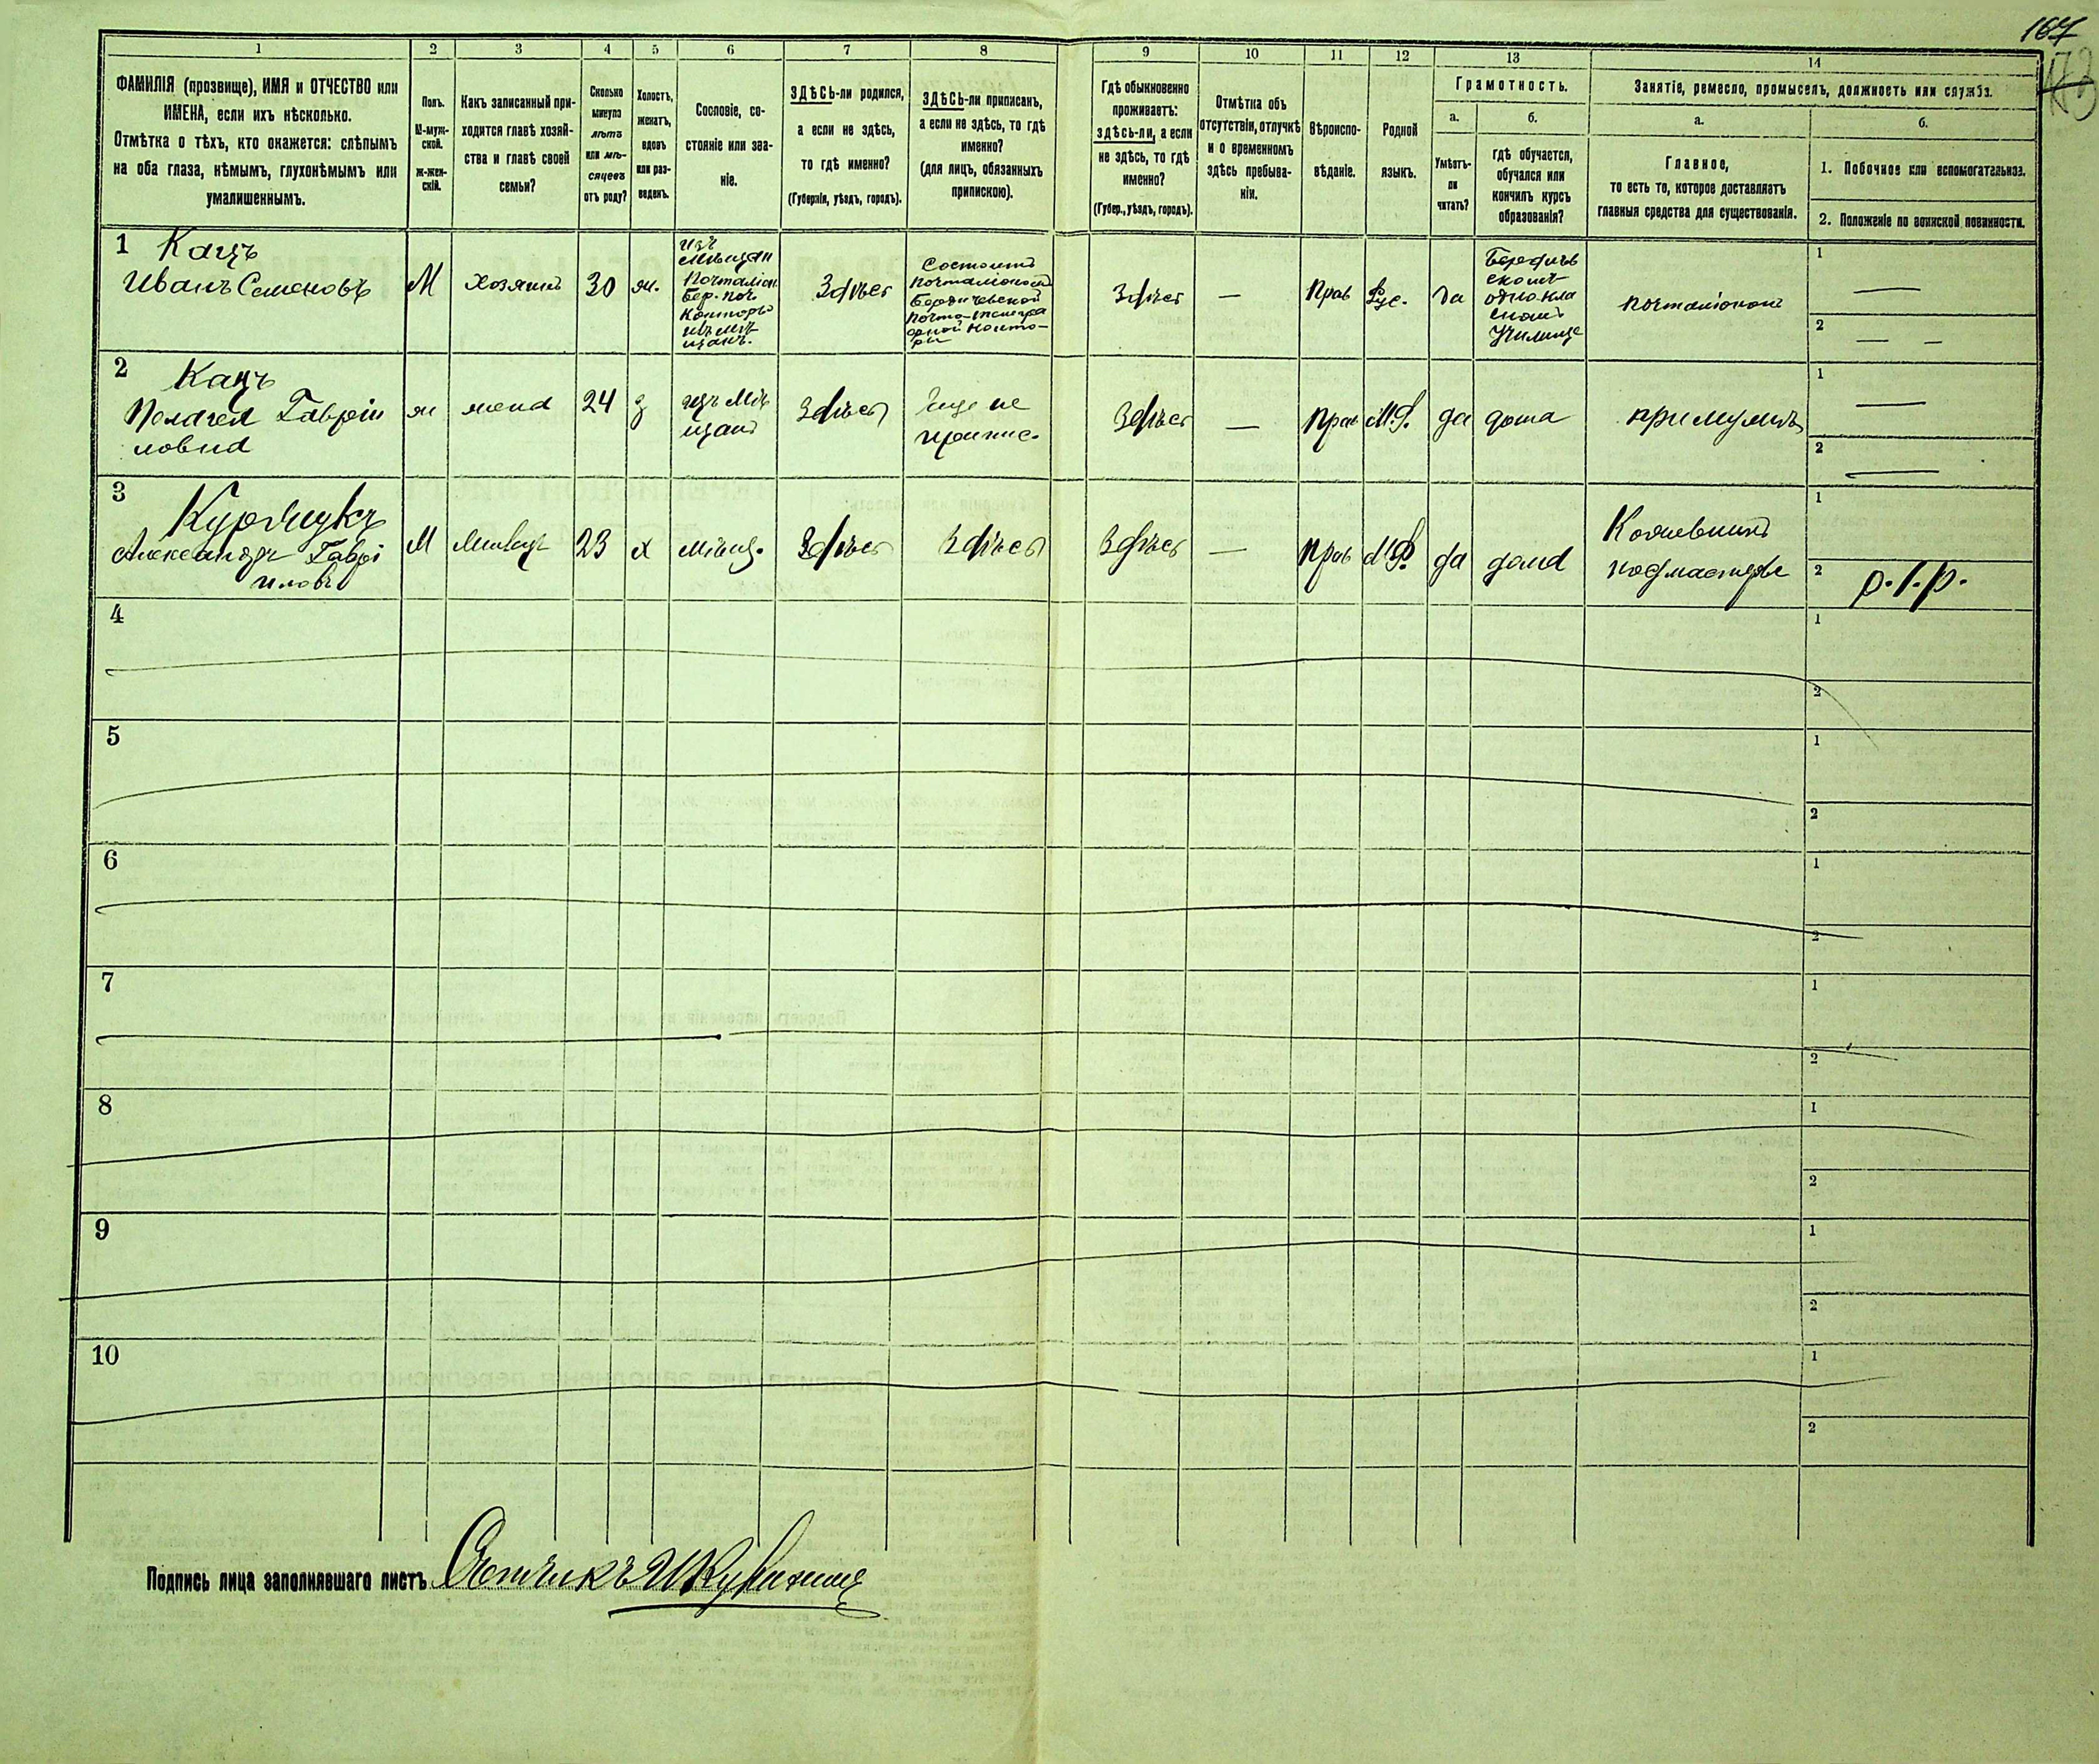 167
173
1 2 3 4 5 6 7 8 9 10 11 12 13 14
ФАМИЛІЯ (прозвище), ИМЯ и ОТЧЕСТВО или
ИМЕНА, если ихъ нѣсколько.
Отмѣтка о тѣхъ, кто окажется: слѣпымъ
на оба глаза, нѣмымъ, глухонѣмымъ или
умалишеннымъ.
Полъ.
М-муж-
ской.
ж-жен-
скій.
Какъ записанный при-
ходится главѣ хозяй-
ства и главѣ своей
семьи?
Сколько
минуло
лѣтъ
или мѣ-
сяцевъ
отъ роду?
Холостъ,
женатъ,
вдовъ
или раз-
веденъ.
Сословіе, со-
стояніе или зва-
ніе.
ЗДѢСЬ-ли родился,
а если не здѣсь,
то гдѣ именно?
(Губернія, уѣздъ, городъ).
ЗДѢСЬ-ли приписанъ,
а если не здѣсь, то гдѣ
именно?
(для лицъ, обязанныхъ
припискою).
Гдѣ обыкновенно
проживаетъ:
здѣсь-ли, а если
не здѣсь, то гдѣ
именно?
(Губер., уѣздъ, городъ).
Отмѣтка объ
отсутствіи, отлучкѣ
и о временномъ
здѣсь пребыва-
ніи.
Вѣроиспо-
вѣданіе.
Родной
языкъ.
Грамотность.
а.
Умѣетъ-
ли
читать?
б.
гдѣ обучается,
обучался или
кончилъ курсъ
образованія?
Занятіе, ремесло, промыселъ, должность или служба.
а.
Главное,
то есть то, которое доставляетъ
главныя средства для существованія.
б.
1. Побочное или вспомогательное.
2. Положеніе по воинской повинности.
1 Кацъ
Иванъ Семеновъ
М
хозяинъ
30
ж.
изъ
мѣщан
Почталіон
Бер. поч
Конторы
изъ мѣ
щанъ.
Здѣсь
Состоитъ
почталіономъ
Бердичевской
почто-телегра
фной конто-
ры
Здѣсь
—
Прав
Рус.
да
Бердичев
скомъ
однокла
сномъ
Училище
почталіономъ
1
2 — —
2 Кацъ
Пелагея Гавріи
ловна
ж
жена
24
з
изъ мѣ
щанъ
Здѣсь
Еще не
припис.
Здѣсь
—
Прав
М.Р.
да
дома
при мужѣ
1 —
2 —
3 Курдчукъ
Александръ Гаврі
иловъ
М
23
х
мѣщ.
Здѣсь
Здѣсь
Здѣсь
—
Прав
М.Р.
да
дома
Кожевникъ
подмастерье
1
2 р.I.р.
4
1
2
5
1
2
6
1
2
7
1
2
8
1
2
9
1
2
10
1
2
Подпись лица заполнявшаго листъ Счетчикъ